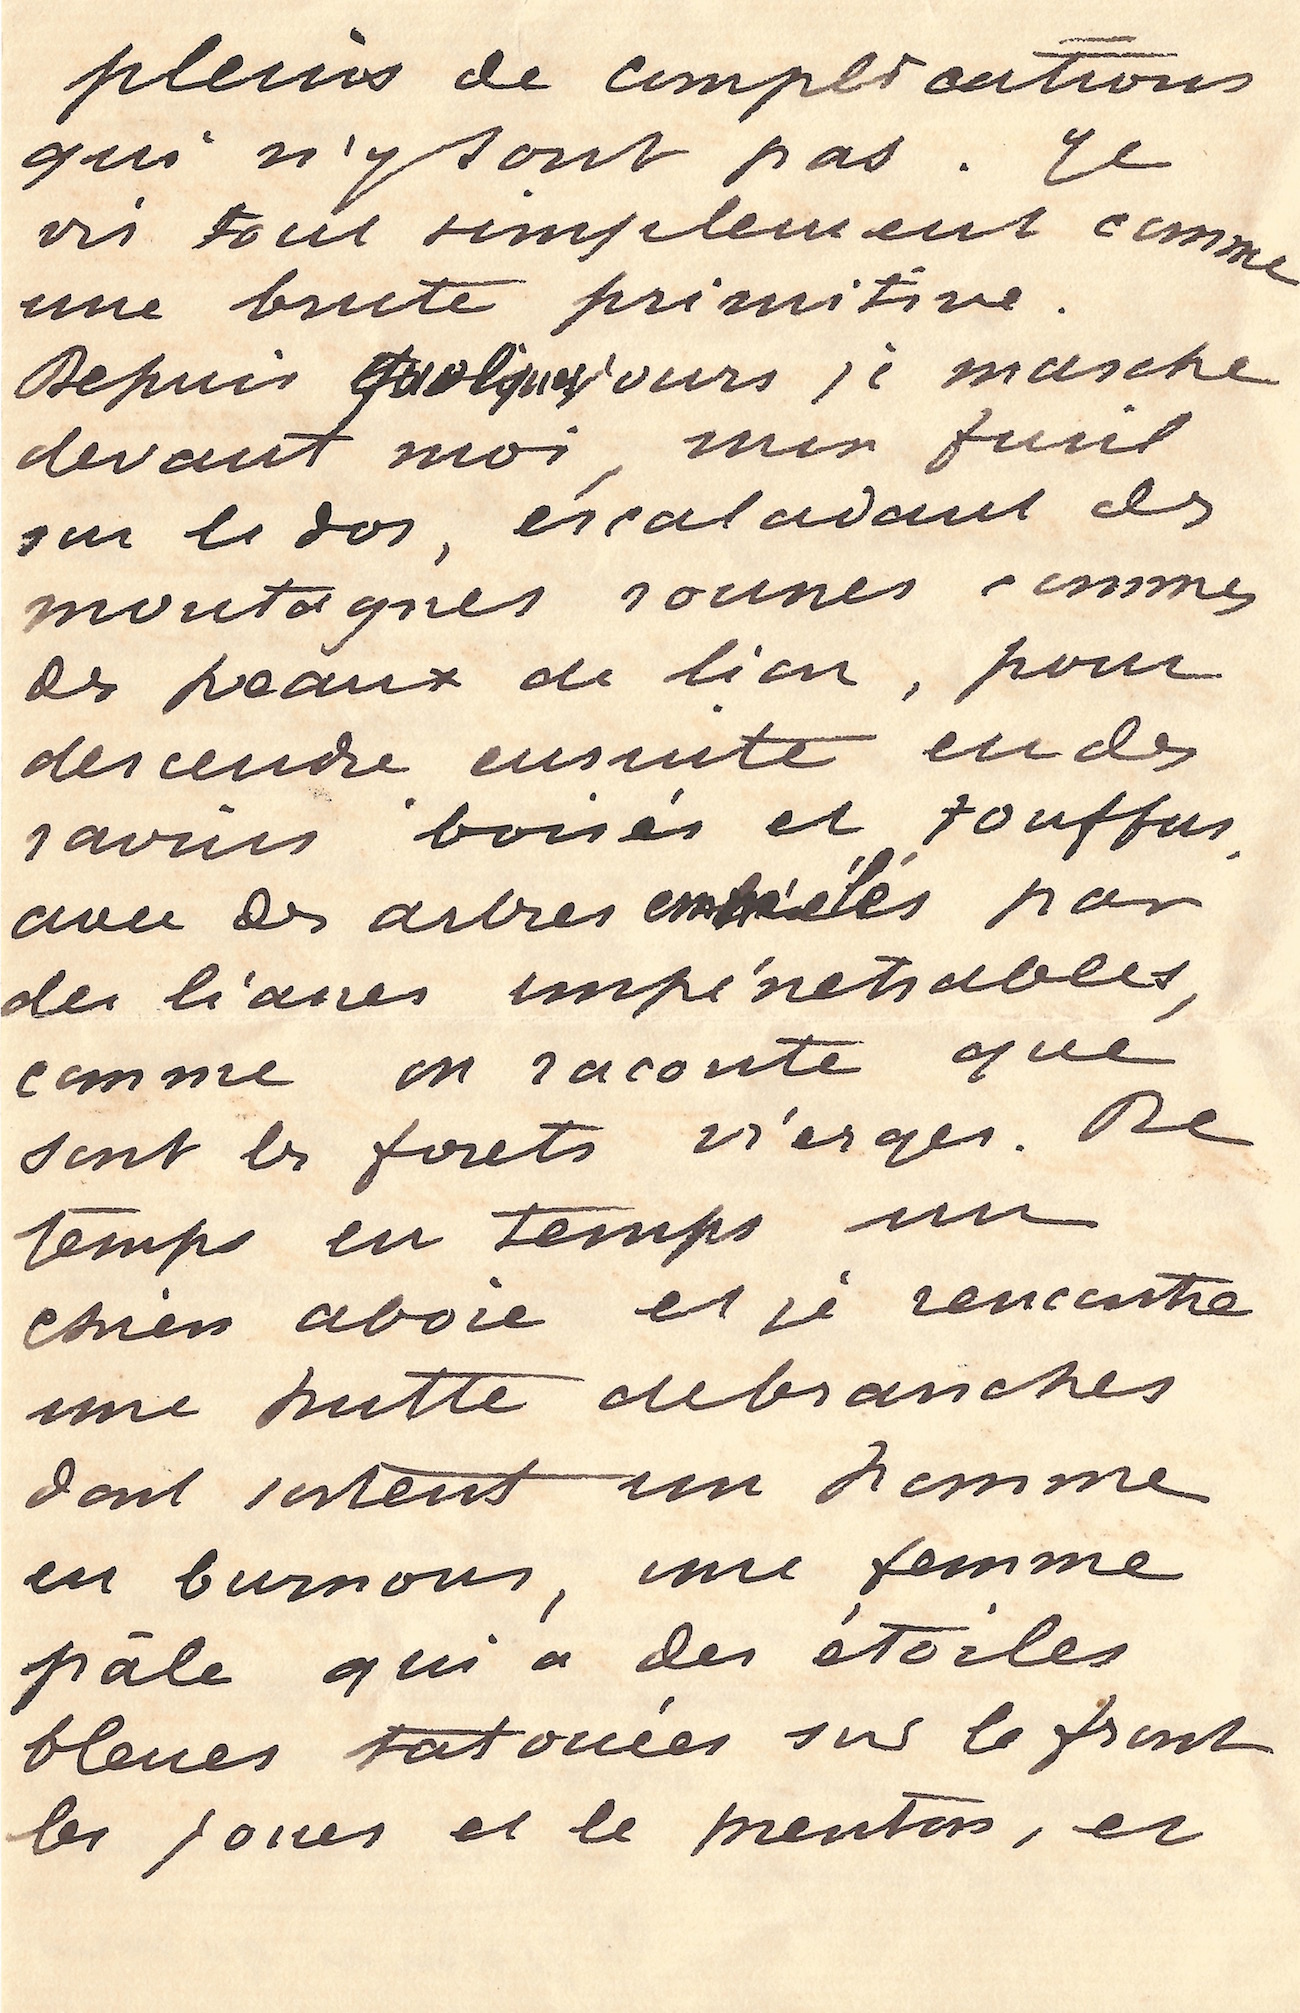 pleins de complications
qui n'y sont pas. Je
vis tout simplement comme
une brute primitive.
Depuis quelques jours je marche
devant moi, mon fusil
sur le dos, escaladant des
montagnes rousses comme
des peaux de lion, pour
descendre ensuite en des
ravins boisés et touffus
avec des arbres par
des lianes impénétrables,
comme on raconte que
sont les forets vierges. De
temps en temps un
chien aboie et je rencontre
une hutte de branches
dont sortent un homme
en burnous, une femme
pâle qui a des étoiles
bleues tatouées sur le front
les joues et le menton, et